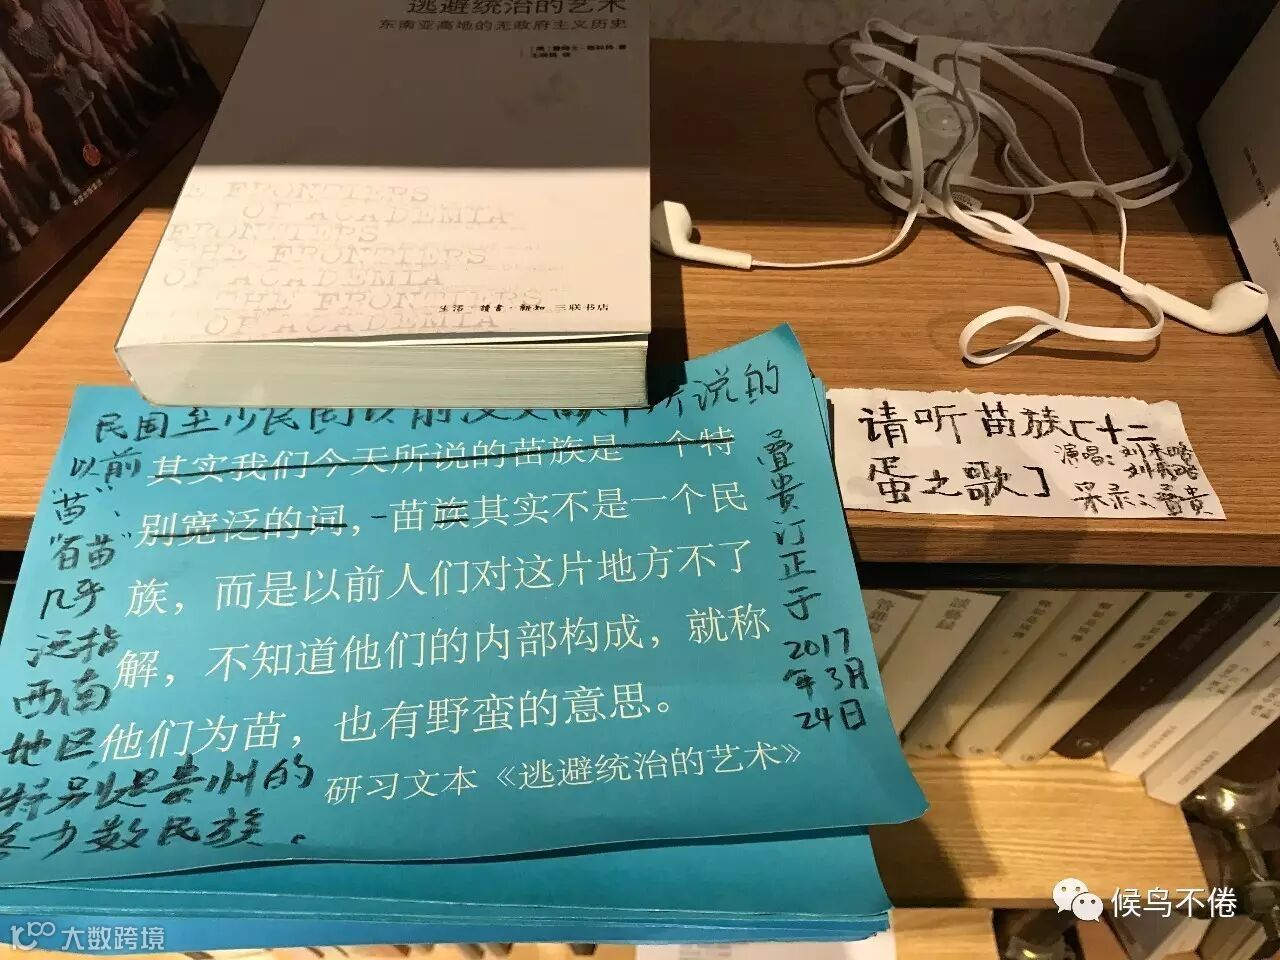 逃避统治的艺术
东南亚高地的无政府主义历史
THE FRONTIERS
OF ACADEMIA
FRONTIERS
THE FRONTIERS
OF ACADEMIA
THE FRONTIERS
OF ACADEMIA
生活·讀書·新知 三联书店
民国至少民国以前汉文献中所说的
以前
"苗"、
"百苗"
几乎
泛指
西南
地区,
特别是贵州的
各少数民族.
其实我们今天所说的苗族是一个特
别宽泛的词，苗族其实不是一个民
族，而是以前人们对这片地方不了
解，不知道他们的内部构成，就称
他们为苗，也有野蛮的意思。
研习文本《逃避统治的艺术》
贵订正于
2017
年3月
24日
请听苗族[十二
蛋之歌]
演唱：
采录：
候鸟不倦
大数跨境